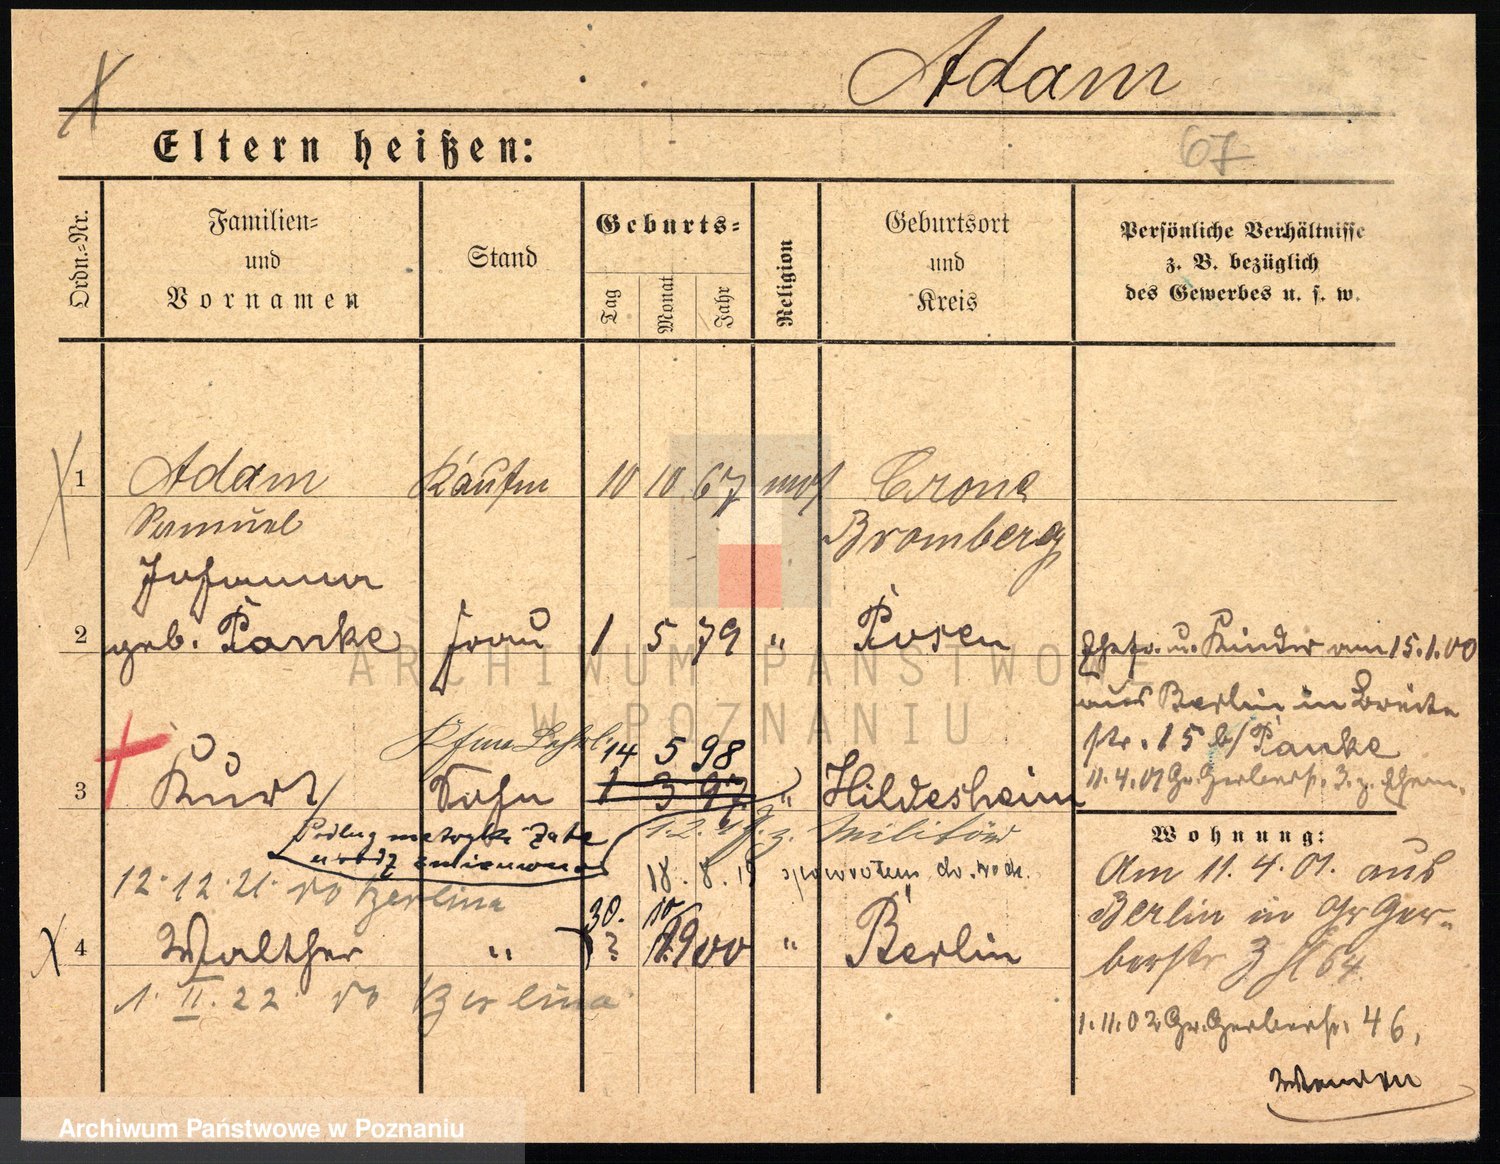 Adam
67
Eltern heißen:
Ordn.-Nr.
Familien-
und
Vornamen
Stand
Geburts-
Tag
Monat
Jahr
Religion
Geburtsort
und
Kreis
Persönliche Verhältnisse
z. B. bezüglich
des Gewerbes u. s. w.
1 Adam Kaufm 10 10 67 mos Crone
Samuel Bromberg
Johanna
2 geb. Panke Frau 1 5 79 " Posen
Ehefr. u. Kinder am 15.1.00
aus Berlin in Breite
str. 15 b/ Panke
11.4.01 Gr. Gerberstr. 3. z. Ehem.
14 5 98
3 Kurt Sohn 1 3 97 " Hildesheim
Podług metryki Zate
urodz zmieniono
1.2. z. Militär
18. 8. 19 spowrotem do
12. 12. 21. do Berlina
30. 10
4 Walther " ? 1900 " Berlin
1. II. 22 do Berlina
Wohnung:
Am 11. 4. 01. aus
Berlin in Gr Ger-
berstr 3 H 64
1. 11. 02 Gr. Gerberstr. 46,
ARCHIWUM PAŃSTWOWE
W POZNANIU
Archiwum Państwowe w Poznaniu